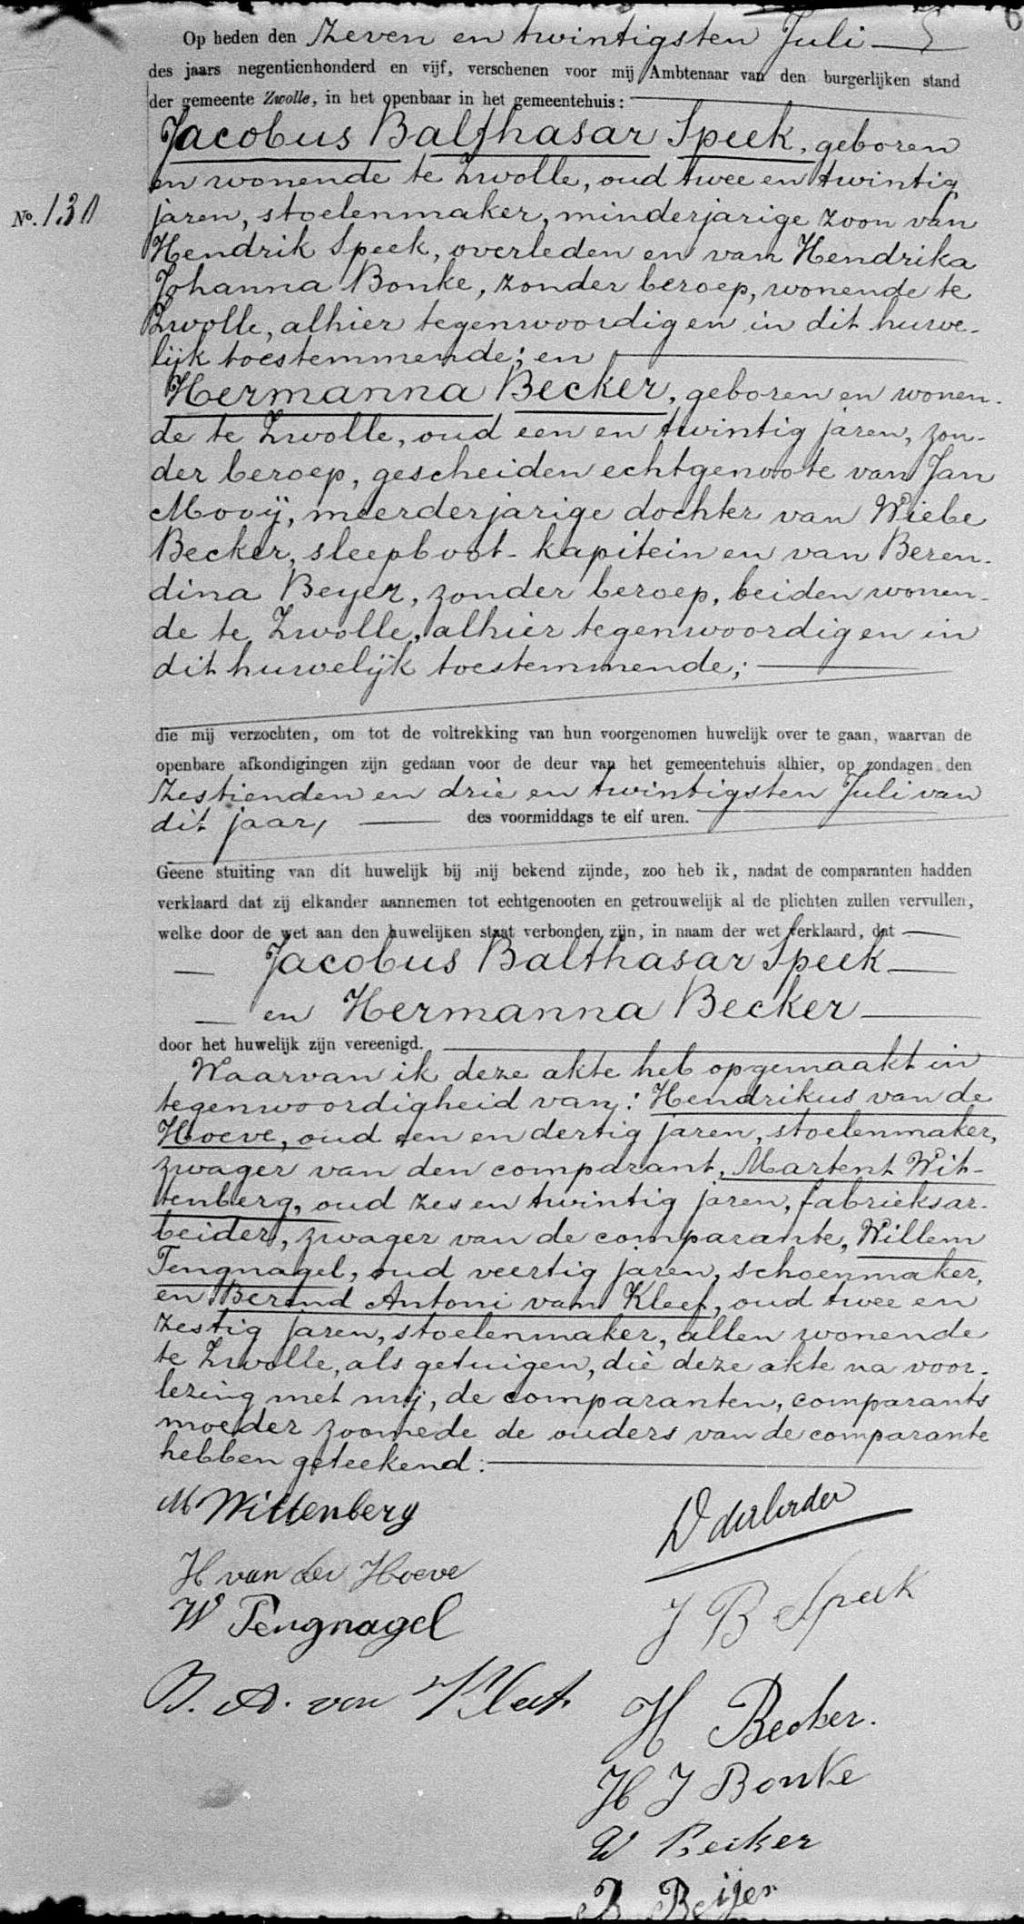 Op heden den Zeven en twintigsten Juli
des jaars negentienhonderd en vijf, verschenen voor mij Ambtenaar van den burgerlijken stand
der gemeente Zwolle, in het openbaar in het gemeentehuis:
Jacobus Balthasar Speek, geboren
en wonende te Zwolle, oud twee en twintig
No. 130
jaren, stoelenmaker, minderjarige zoon van
Hendrik Speek, overleden en van Hendrika
Johanna Bonke, zonder beroep, wonende te
Zwolle, alhier tegenwoordig en in dit huwe-
lijk toestemmende; en
Hermanna Becker, geboren en wonen-
de te Zwolle, oud een en twintig jaren, zon-
der beroep, gescheiden echtgenoote van Jan
Mooij, meerderjarige dochter van Wiebe
Becker, sleepboot-kapitein en van Beren-
dina Beyer, zonder beroep, beiden wonen-
de te Zwolle, alhier tegenwoordig en in
dit huwelijk toestemmende;
die mij verzochten, om tot de voltrekking van hun voorgenomen huwelijk over te gaan, waarvan de
openbare afkondigingen zijn gedaan voor de deur van het gemeentehuis alhier, op zondagen den
Zestienden en drie en twintigsten Juli van
dit jaar, des voormiddags te elf uren.
Geene stuiting van dit huwelijk bij mij bekend zijnde, zoo heb ik, nadat de comparanten hadden
verklaard dat zij elkander aannemen tot echtgenooten en getrouwelijk al de plichten zullen vervullen,
welke door de wet aan den huwelijken staat verbonden zijn, in naam der wet verklaard, dat
Jacobus Balthasar Speek
en Hermanna Becker
door het huwelijk zijn vereenigd.
Waarvan ik deze akte heb opgemaakt in
tegenwoordigheid van: Hendrikus van de
Hoeve, oud een en dertig jaren, stoelenmaker,
zwager van den comparant, Martent Wit-
tenberg, oud zes en twintig jaren, fabrieksar-
beider, zwager van de comparante, Willem
Tengnagel, oud veertig jaren, schoenmaker,
en Berend Antoni van Kleef, oud twee en
zestig jaren, stoelenmaker, allen wonende
te Zwolle, als getuigen, die deze akte na voor-
lezing met mij, de comparanten, comparants
moeder zoomede de ouders van de comparante
hebben geteekend:
M Wittenberg
H van der Hoeve
W Tengnagel
J B Speek
B. A. van Kleef
H Becker.
H J Bonke
W Becker
B Beijer